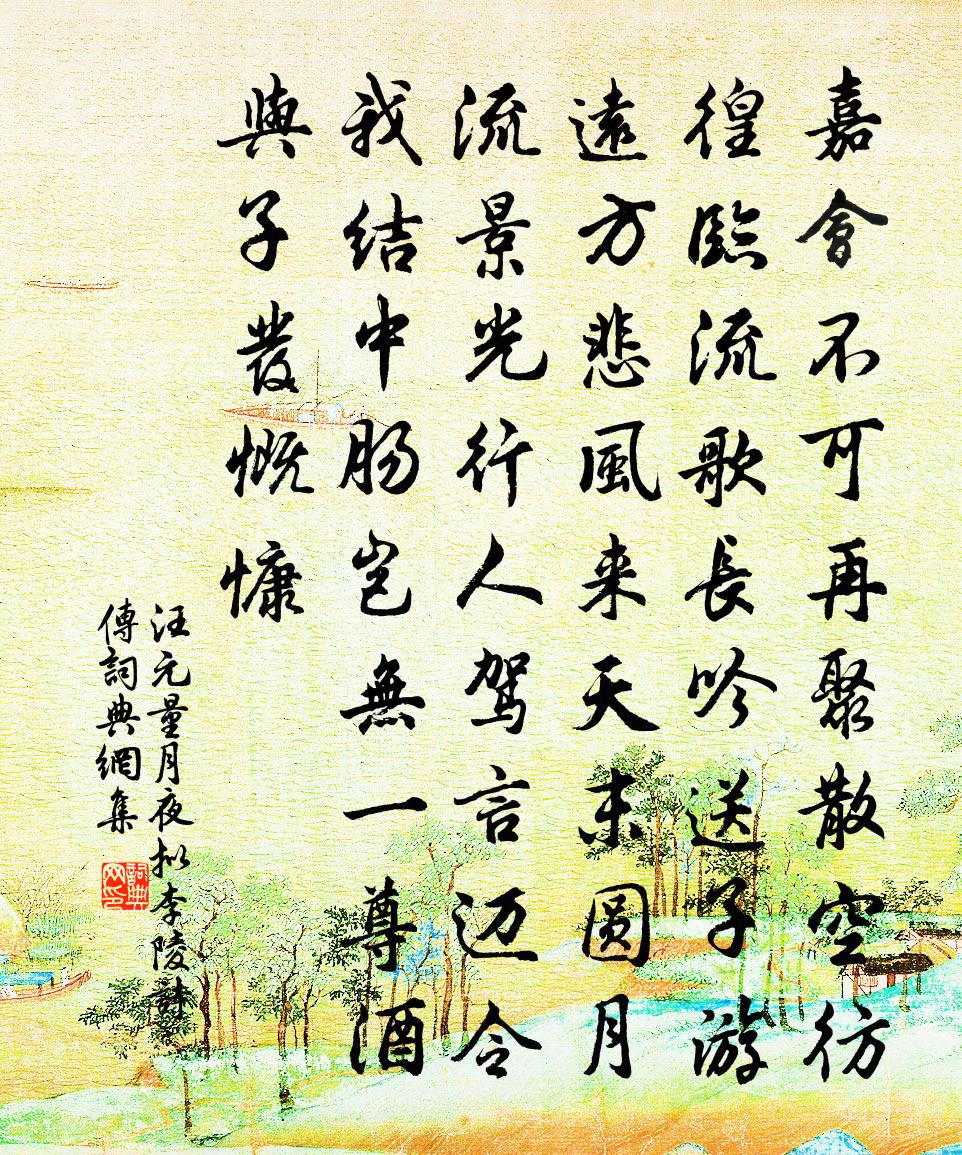 嘉會不可再聚散空彷
徨臨流歌長吟送子游
遠方悲風来天末圓月
流景光行人駕言迈令
我结中肠岂無一尊酒
與子發慨慷
汪元量月夜拟李陵詩
傳詞典網集
詞典网印